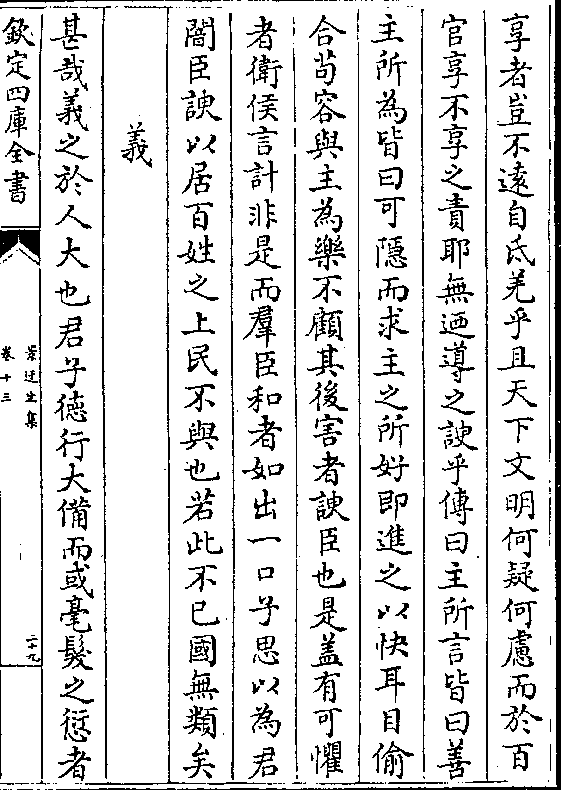 享者豈不遠自氐羌乎且天下文明何疑何慮而於百
官享不享之責耶無迺導之諛乎傳曰主所言皆曰善
主所為皆曰可隱而求主之所好即進之以快耳目偷
合茍容與主為樂不顧其後害者諛臣也是盖有可懼
者衛侯言計非是而羣臣和者如出一口子思以為君
闇臣諛以居百姓之上民不與也若此不已國無類矣
義
甚哉義之於人大也君子德行大備而或毫髮之愆者
欽定四庫全書
景迂生集
卷十三
二十九